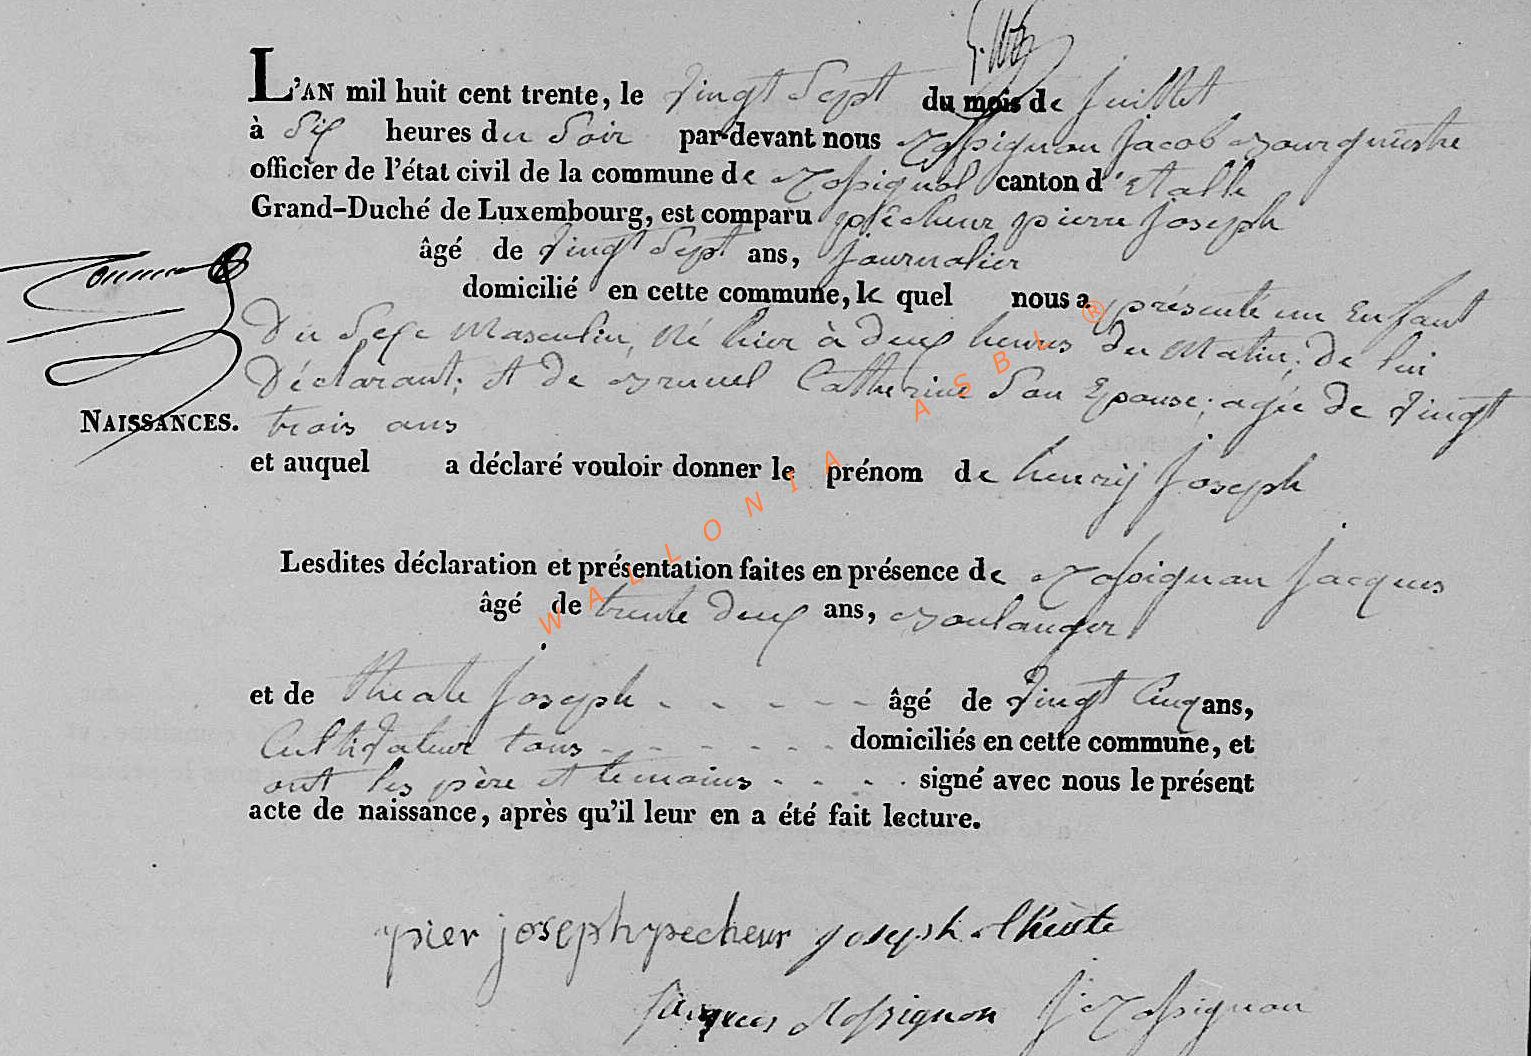 L'AN mil huit cent trente, le vingt Sept du mois de juillet
à Six heures du Soir par-devant nous Rossignon Jacob Bourgmestre
officier de l'état civil de la commune de Rossignol canton d'Etalle
Grand-Duché de Luxembourg, est comparu pêcheur pierre Joseph
âgé de vingt Sept ans, journalier
domicilié en cette commune, lequel nous a présenté un Enfant
Du Sexe Masculin, Né hier à deux heures du Matin, De lui
Déclarant; et de Brunel Catherine Son Epouse; agée de vingt
NAISSANCES. trois ans
et auquel a déclaré vouloir donner le prénom de henrij Joseph
Lesdites déclaration et présentation faites en présence de Rossignon Jacques
âgé de trente deux ans, Boulanger
et de Joseph âgé de vingt Cinq ans,
Cultivateur tous domiciliés en cette commune, et
ont les père et temoins signé avec nous le présent
acte de naissance, après qu'il leur en a été fait lecture.
pier joseph pecheur joseph
jacques Rossignon J Rossignon
WALLONIA ASBL ®